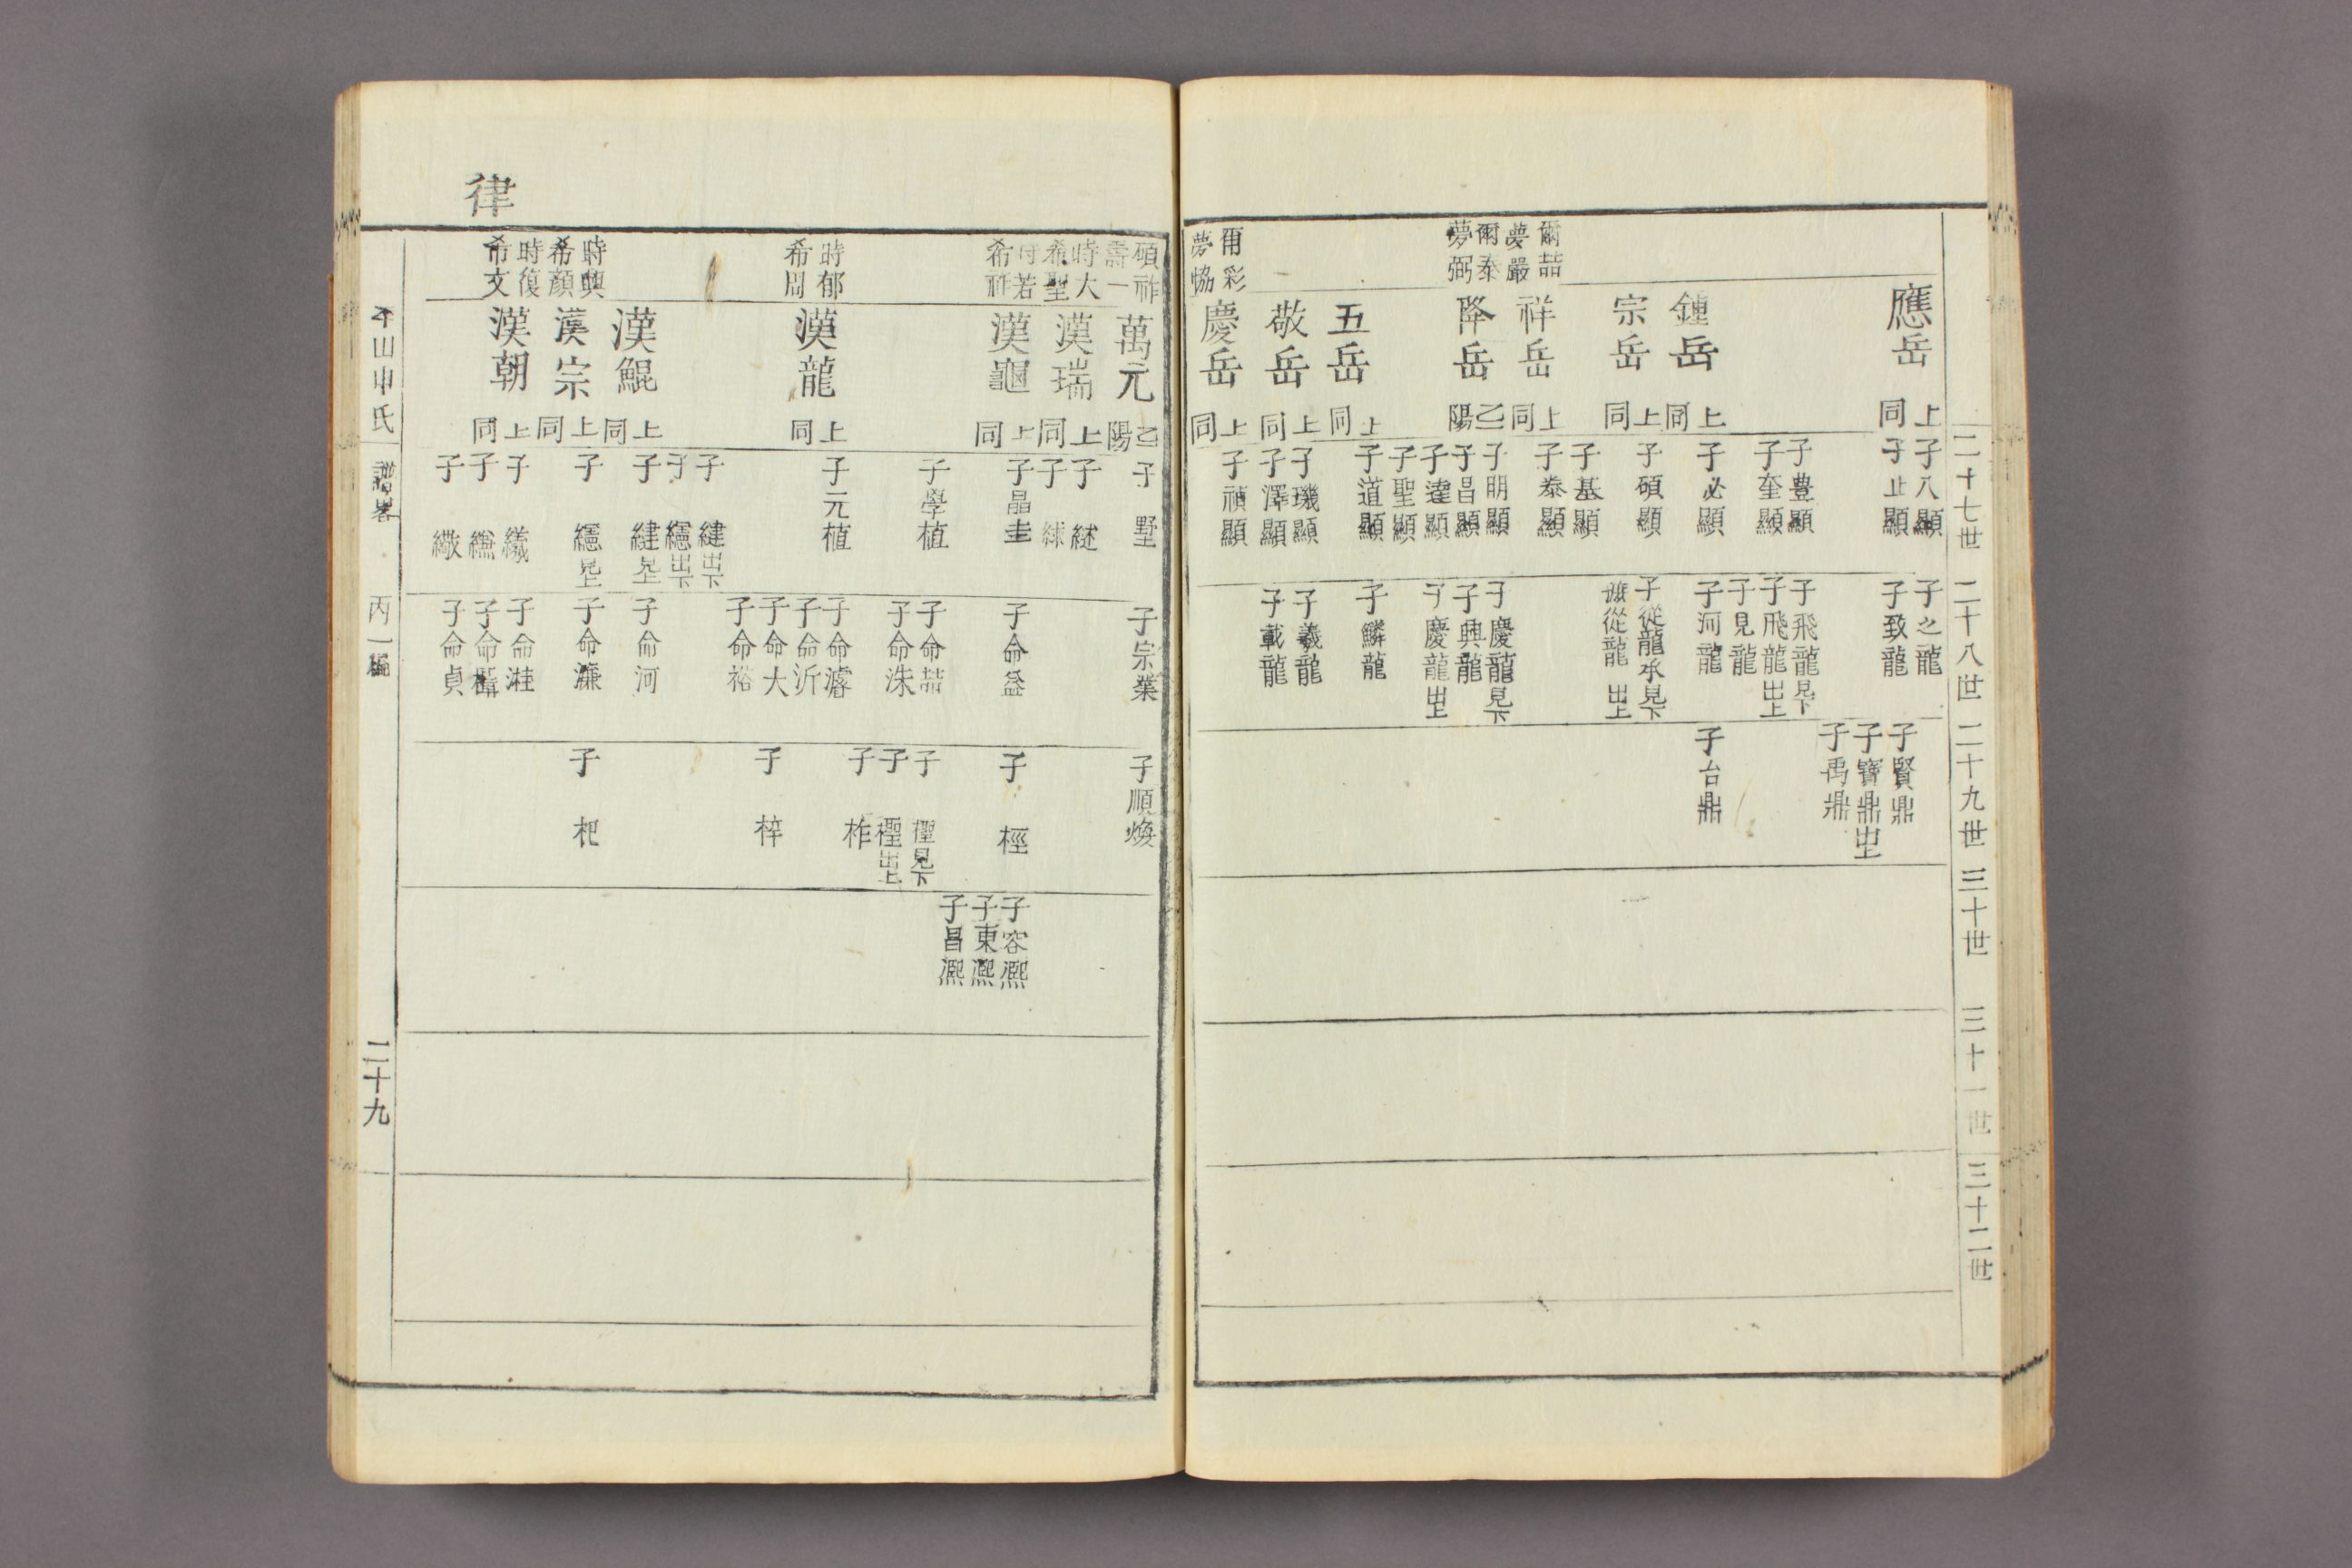 二十七世
二十八世
二十九世
三十世
三十一世
三十二世
應岳
上同
鍾岳
上同
宗岳
上同
爾喆
夢嚴
祥岳
上同
爾泰
夢弼
降岳
乙陽
五岳
上同
敬岳
上同
爾彩
夢協
慶岳
上同
子八顯
子止顯
子豊顯
子奎顯
子必顯
子碩顯
子基顯
子泰顯
子明顯
子昌顯
子達顯
子聖顯
子道顯
子璣顯
子澤顯
子禎顯
子之龍
子致龍
子飛龍見下
子飛龍出上
子見龍
子河龍
子從龍承見下
從龍出上
子慶龍見下
子興龍
子慶龍出上
子鱗龍
子羲龍
子載龍
子賢鼎
子寶鼎出上
子禹鼎
子台鼎
碩祚
壽一
萬元
乙陽
時大
希聖
漢瑞
上同
時若
希祚
漢龜
上同
時郁
希周
漢龍
上同
漢鯤
上同
時興
希顏
漢宗
上同
時復
希文
漢朝
上同
子墅
子絿
子晶圭
子學植
子元植
子緁出下
子繧出下
子緁見上
子繧見上
子纖
子繖
子宗業
子命益
子命喆
子命洙
子命濬
子命沂
子命大
子命裕
子命河
子命濂
子命溎
子命貞
子順煥
子桱
子檉見下
子檉出上
子柞
子梓
子杞
子容熙
子東熙
子昌熙
律
平山申氏
譜畧
丙一編
二十九